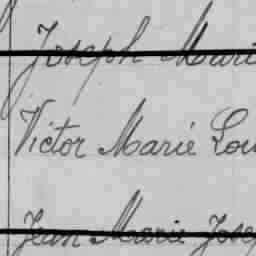 Joseph Marie
Victor Marie Lou
Jean Marie Josep